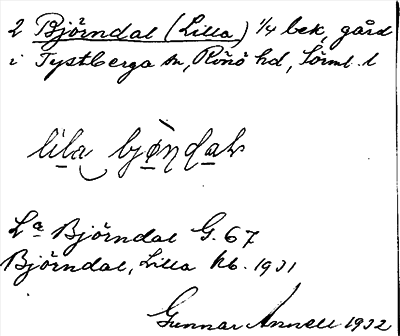 2 Björndal (Lilla) 1/4 bek, gård
i Tystberga sn, Rönö hd, Sörml. l
lila bjøndaḷ
La Björndal G. 67
Björndal, Lilla kb. 1931
Gunnar Annell 1932